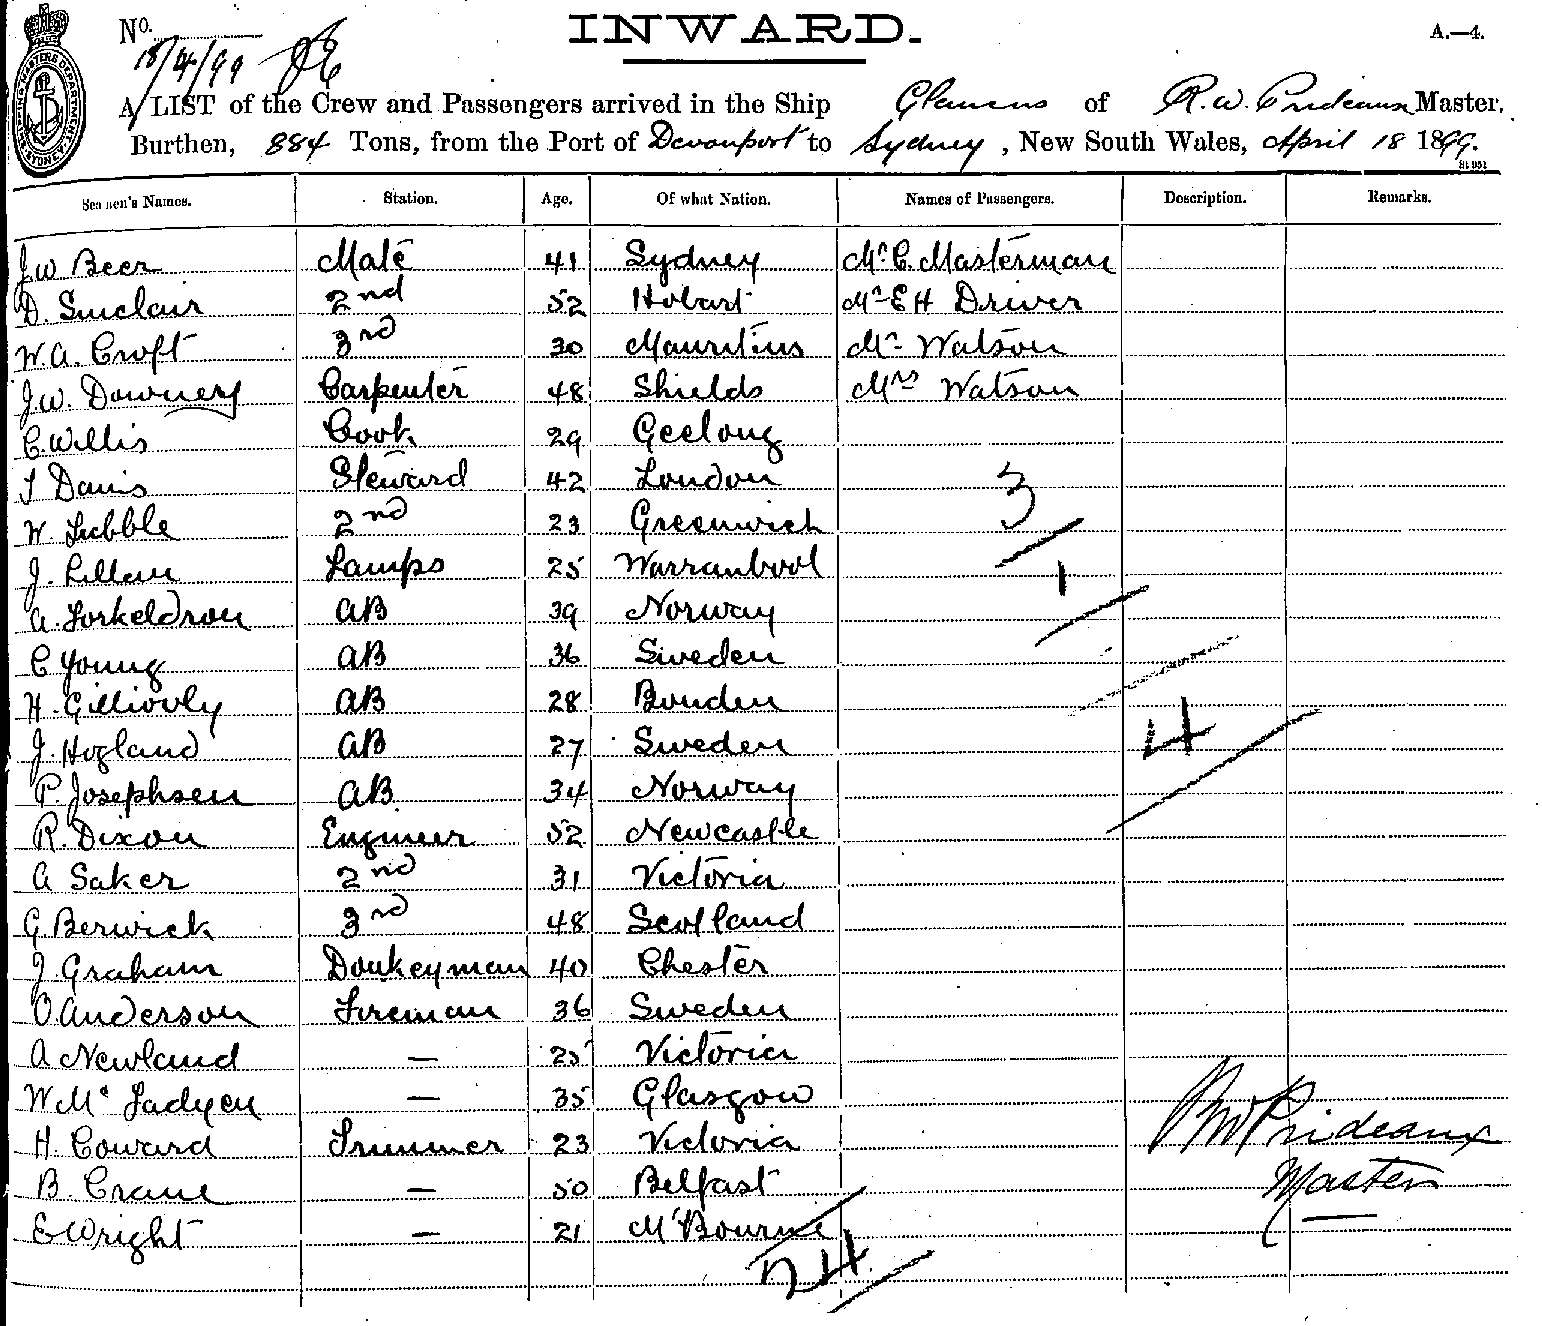 No.
INWARD.
A.—4.
18/4/99
A LIST of the Crew and Passengers arrived in the Ship Glaucus of R. W. Prideaux Master,
Burthen, 884 Tons, from the Port of Devonport to Sydney, New South Wales, April 18 1899.
St 951
Seamen's Names. Station. Age. Of what Nation. Names of Passengers. Description. Remarks.
J W Beer Mate 41 Sydney Mr C. Masterman
D. Sinclair 2nd 52 Hobart Mr E H Driver
W. A. Croft 3rd 30 Mauritius Mr Watson
J. W. Downery Carpenter 48 Shields Mrs Watson
C. Willis Cook 29 Geelong
T Davis Steward 42 London 3
W. Tubble 2nd 23 Greenwich
J. Lamps 25 Warranbool 1
A. Torkeldron AB 39 Norway
C Young AB 36 Sweden
H. AB 28 4
J. Hogland AB 27 Sweden
P. Josephsen AB 34 Norway
R. Dixon Engineer 52 Newcastle
A Saker 2nd 31 Victoria
G. Berwick 3rd 48 Scotland
J. Graham Donkeyman 40 Chester
O Anderson Fireman 36 Sweden
A Newland — 25 Victoria
W. Mc Fadyen — 35 Glasgow
H. Coward Trimmer 23 Victoria RW Prideaux
B. Crane — 50 Belfast Master
E Wright — 21 M'Bourne
24